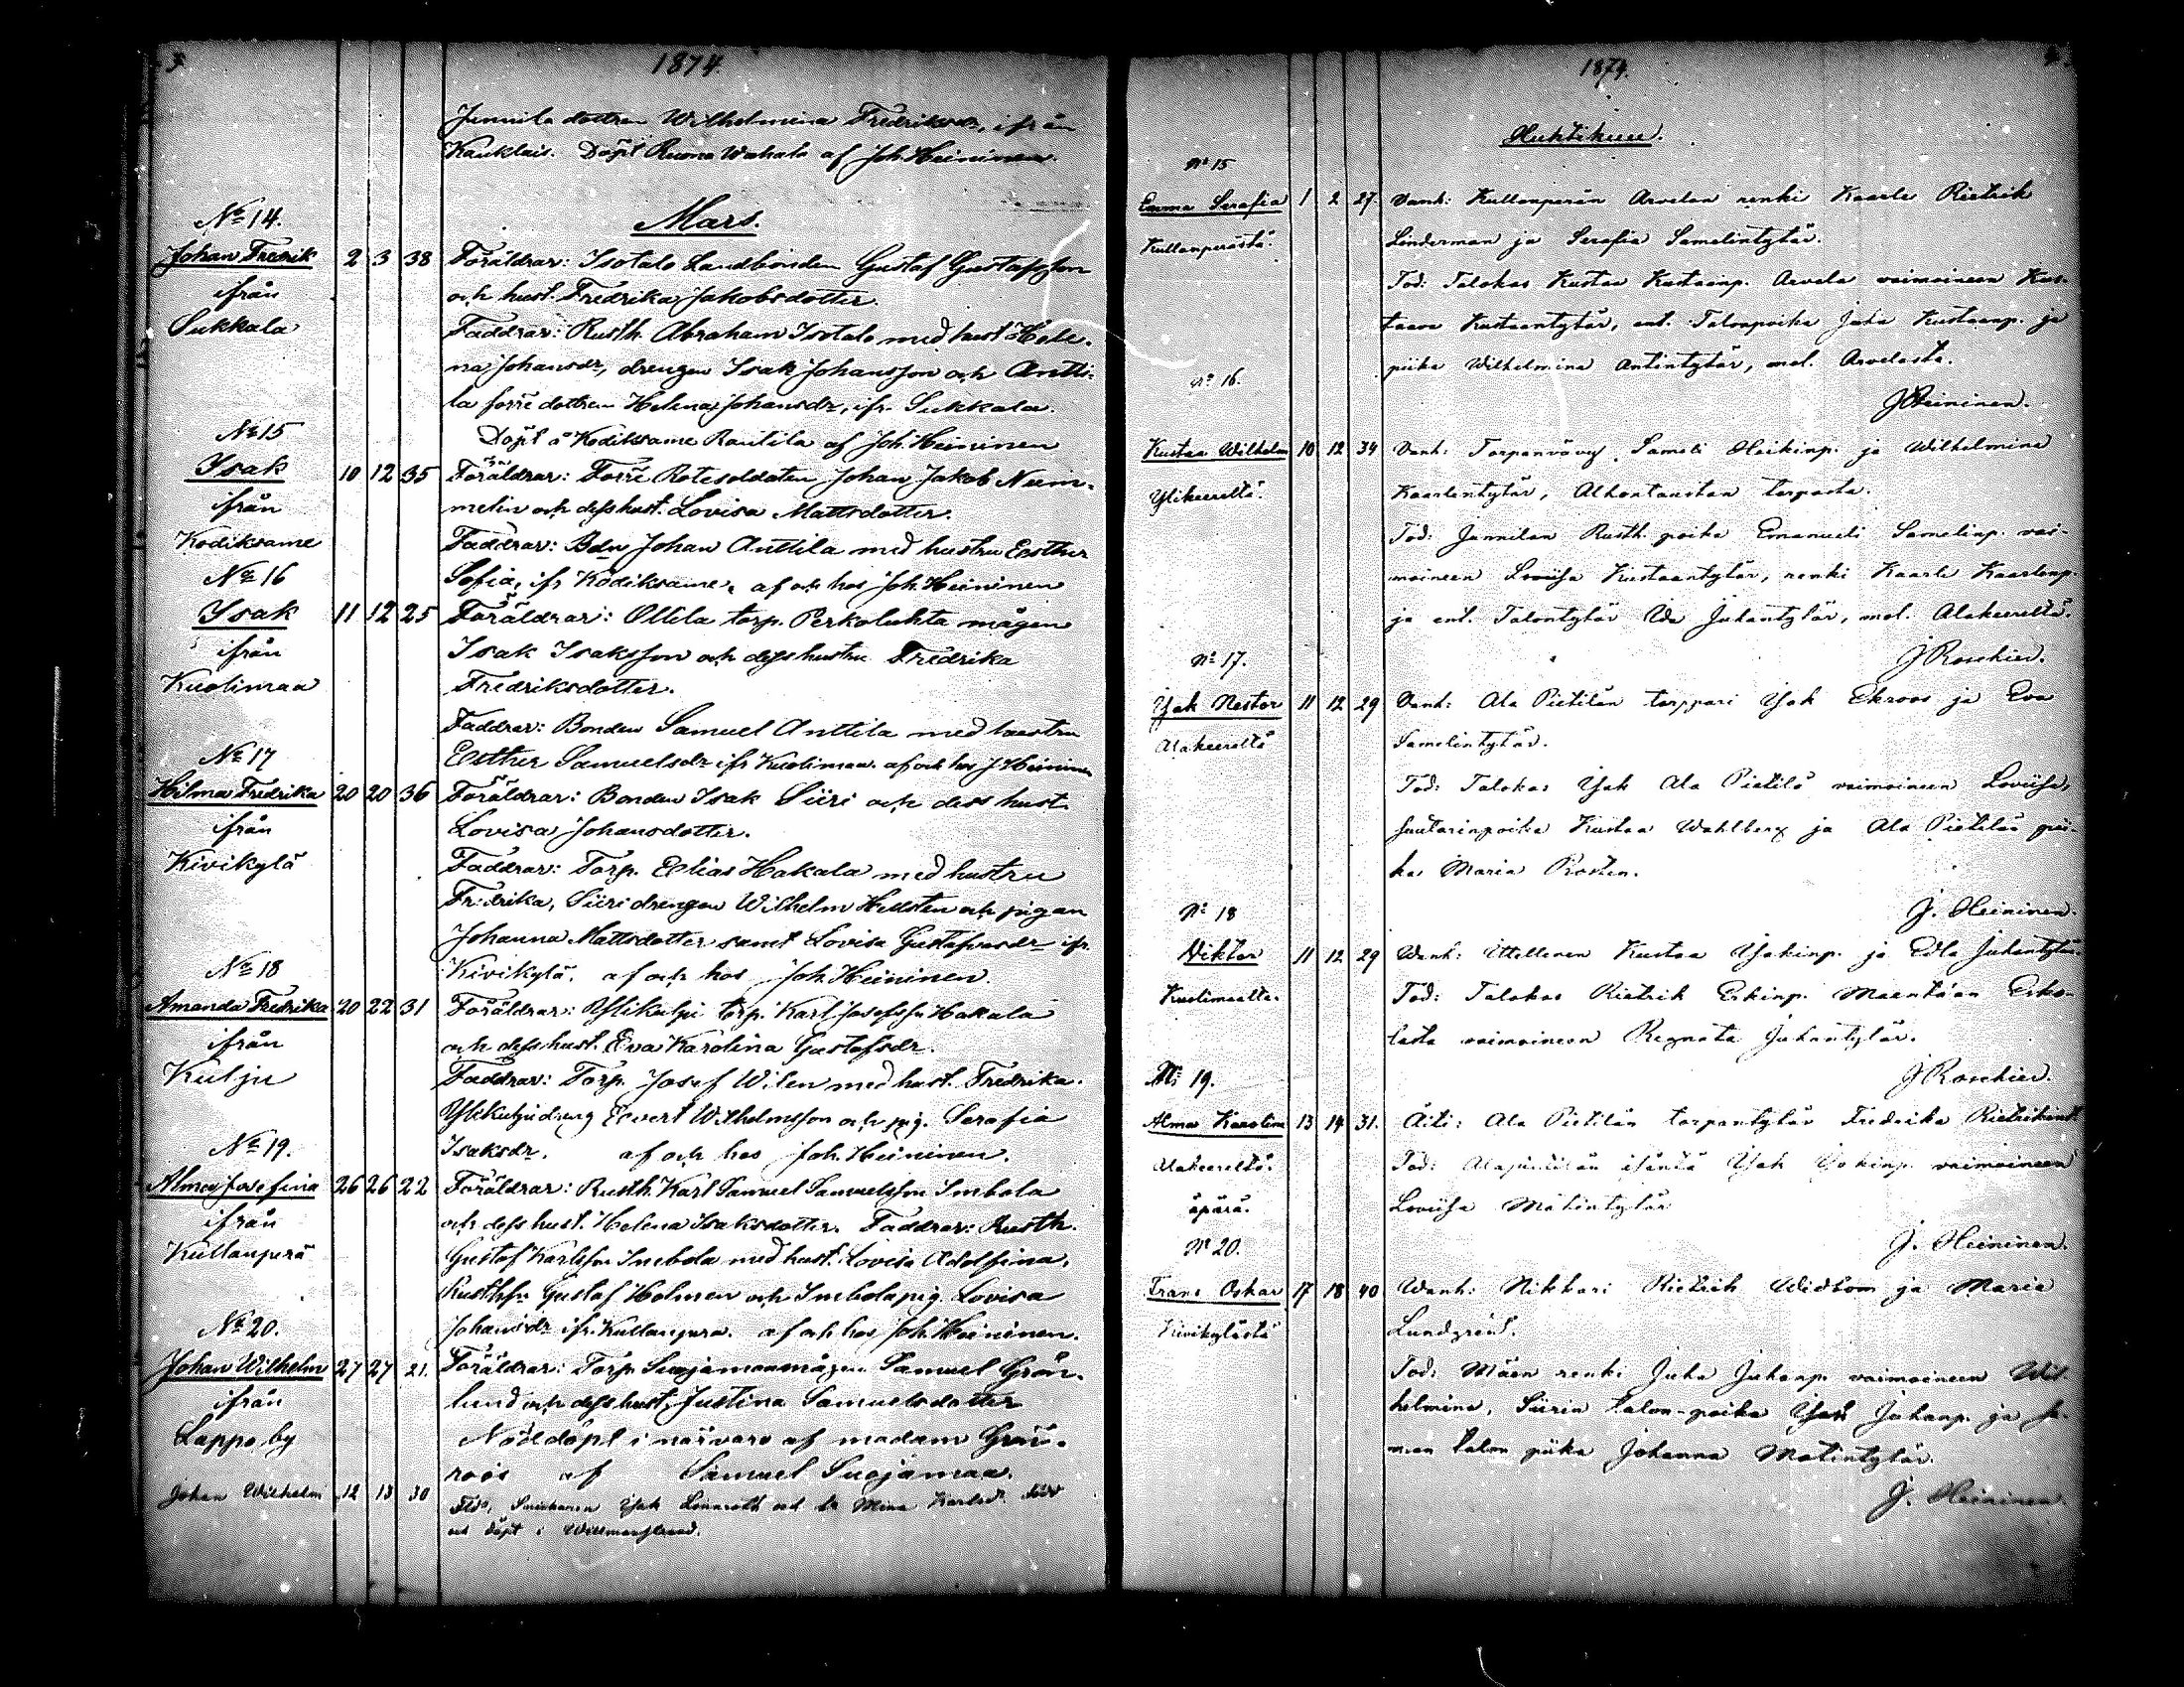 3.
1874.
Jennila dottren Wilhelmina Fredriksdr, ifrån
Kauklais. Döpt Ruona Wahala af Joh. Heininen.
Mars.
No 14.
Johan Fredrik 2 3 38 Föräldrar: Isotalo Landbonden Gustaf Gustafsson
ifrån och hust. Fredrika Jakobsdotter.
Sukkala Faddrar: Rusth. Abraham Isotalo med hust Hele-
na Johansdr, drengen Isak Johansson och Antti-
la förre dottren Helena Johansdr, ifr. Sukkala.
Döpt å Kodiksame Rantila af Joh. Heininen
No 15
Isak 10 12 35 Föräldrar: Förre Rotesoldaten Johan Jakob Num-
ifrån melin och dess hust. Lovisa Mattsdotter.
Kodiksame Faddrar: Bdn Johan Anttila med hustru Eesther
Sofia, ifr Kodiksame, af och hos Joh. Heininen
No 16
Isak 11 12 25 Föräldrar: Ollila torp. Perkoluhta mågen
ifrån Isak Isaksson och dess hustru Fredrika
Kuolimaa Fredriksdotter.
Faddrar: Bonden Samuel Anttila med hustru
Eesther Samuelsdr ifr Kuolimaa. af och hos J. Heininen
No 17
Hilma Fredrika 20 20 36 Föräldrar: Bonden Isak Siiri och dess hust.
ifrån Lovisa Johansdotter.
Kivikylä Faddrar: Torp. Elias Hakala med hustru
Fredrika, Siiri drengen Wilhelm Hellsten och pigan
Johanna Mattsdotter samt Lovisa Gustafvasdr ifr.
Kivikylä. af och hos Joh. Heininen.
No 18
Amanda Fredrika 20 22 31 Föräldrar: torp. Karl Josefss. Hakala
ifrån och dess hust. Eva Karolina Gustafsdr.
Kulju Faddrar: Torp. Josef Wilen med hust. Fredrika.
Evert Wilhelmsson och pig. Serafia
Isaksdr. af och hos Joh. Heininen.
No 19.
Alma Josefina 26 26 22 Föräldrar: Rusth. Karl Samuel Samuelsson Imbola
ifrån och dess hust. Helena Isaksdotter. Faddrar: Rusth.
Kullanperä Gustaf Karlsson Imbola med hust. Lovisa Adolfina,
Gustaf Holmen och Imbola pig. Lovisa
Johansdr ifr. Kullanperä. af och hos Joh. Heininen.
No 20.
Johan Wilhelm 27 27 21. Föräldrar: Torp. Suojamaa mågen Samuel Grön-
ifrån lund och dess hust. Justina Samuelsdotter
Lappo by Nöddöpt i närvaro af madam Grön-
roos af Samuel Suojamaa.
Johan Wilhelm 12 13 30 Isak Lönnroth och h. Mina Karlsdr. född
och döpt i Willmanstrand.
1874.
4.
Huhtikuu.
No 15
Emma Serafia 1 2 27. Vanh: Kullanperän Arvelan renki Kaarle Rietrik
Kullanperästä. Linderman ja Serafia Samelintytär.
Tod: Talokas Kustaa Kustaanp. Arvela vaimoineen Kus-
taava Kustaantytär, ent. Talonpoika Juha Kustaanp. ja
piika Wilhelmina Antintytär, mol. Arvelasta.
J Heininen.
No 16.
Kustaa Wilhelm 10 12 34 Vanh: Torpanvävy Sameli Heikinp. ja Wilhelmina
Ylikeereltä. Kaarlentytär, Alhontaustan torpasta.
Tod: Junnilan Rusth. poika Emanueli Samelinp. vai-
moineen Loviisa Kustaantytär, renki Kaarle Kaarlenp.
ja ent. Talontytär Ida Juhantytär, mol. Alakeereltä.
J Roschier.
No 17.
Isak Nestor 11 12 29 Vanh: Ala Pietilän torppari Isak Ekroos ja Eva
Alakeereltä Samelintytär.
Tod: Talokas Isak Ala Pietilä vaimoineen Loviisa,
Suutarinpoika Kustaa Wahlberg ja Ala Pietilän pii-
ka Maria Rosten.
J. Heininen.
No 18
Viktor 11 12 29 Wanh: Itsellinen Kustaa Isakinp. ja Edla Juhantytär.
Kuolimaalta. Tod: Talokas Rietrik Erkinp. Maentaan Erko-
lasta vaimoineen Regnata Juhantytär.
J Roschier.
No 19.
Alma Karolina 13 14 31. Äiti: Ala Pietilän torpantytär Fredrika Rietrikint.
Alakeereltä. Tod: Alapietilän isäntä Isak Isakinp. vaimoineen
äpärä. Loviisa Matintytär
J. Heininen.
No 20.
Frans Oskar 17 18 40 Wanh: Nikkari Rietrik Widbom ja Maria
Kivikylästä Lundgren.
Tod: Mäen renki Juha Juhanp. vaimoineen Wil-
helmina, Siirin talon-poika Isak Juhanp. ja sa-
man talon piika Johanna Matintytär.
J. Heininen.